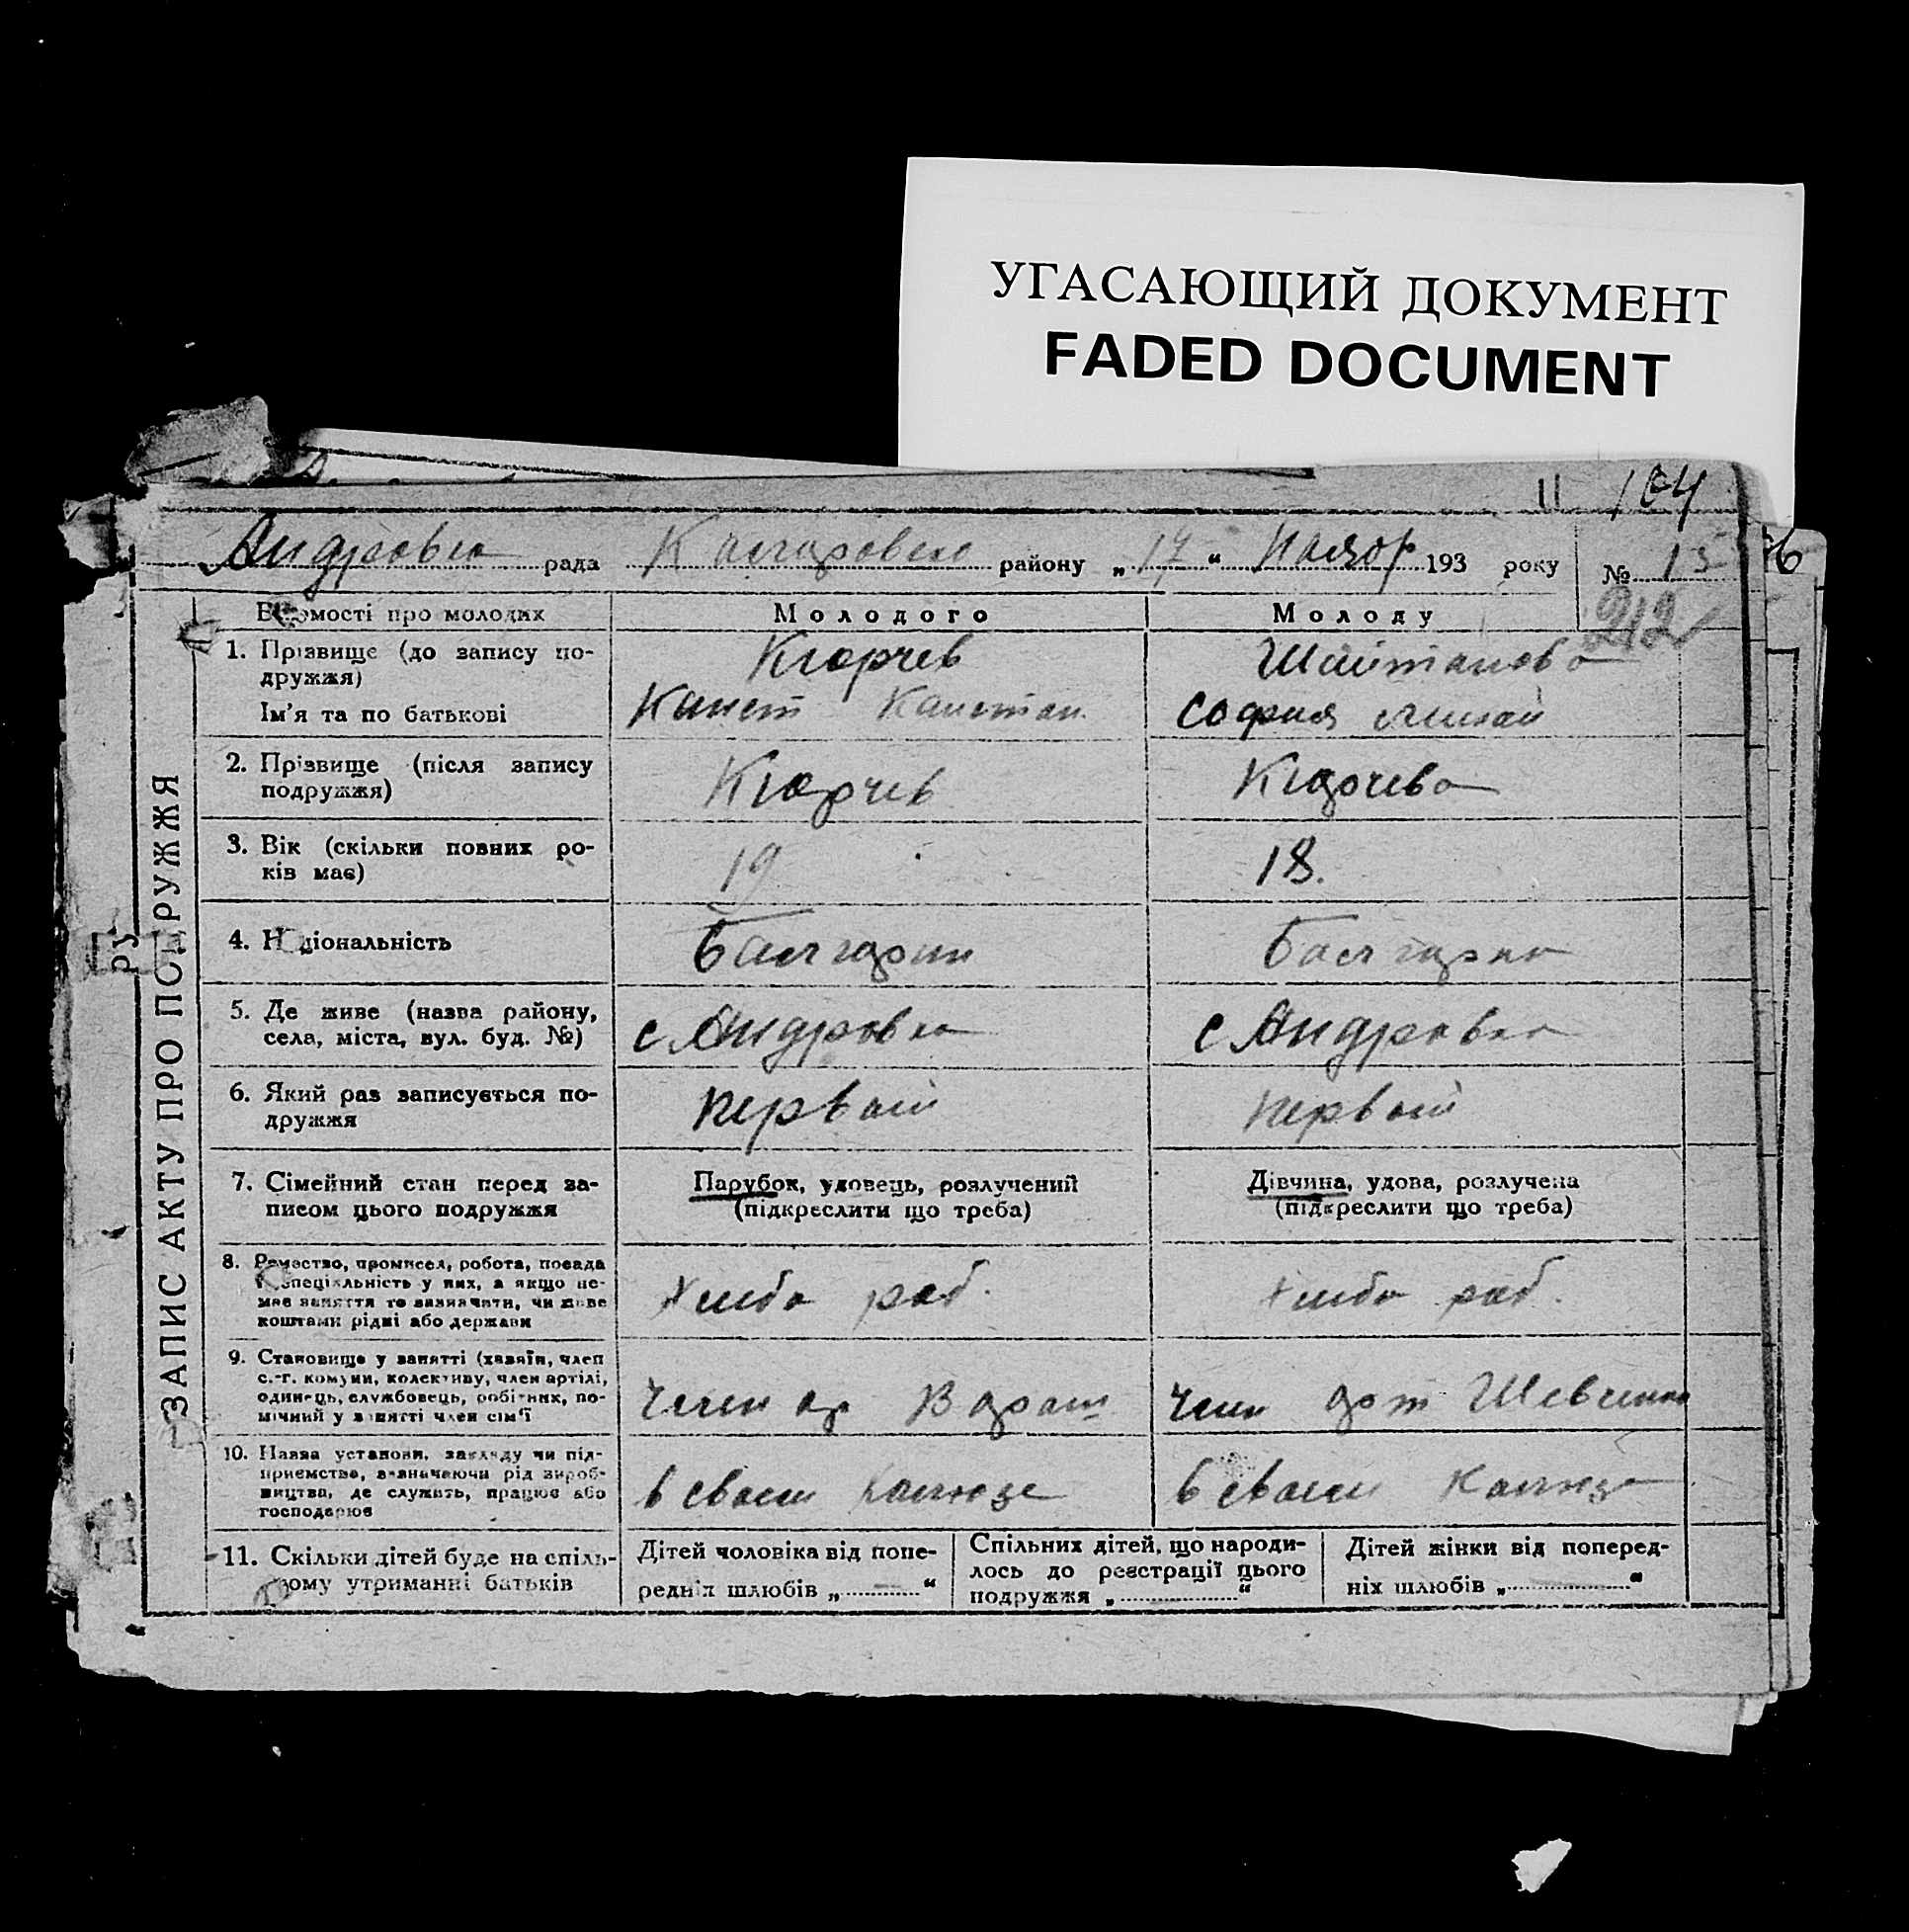 УГАСАЮЩИЙ ДОКУМЕНТ
FADED DOCUMENT
11 164
Андровка рада района району „ 17 “ Ноябр 193 року № 15
212
ЗАПИС АКТУ ПРО ПОДРУЖЖЯ
Відомості про молодих Молодого Молоду
1. Прізвище (до запису по-
дружжя)
Кюрчев
Ім'я та по батькові
София
2. Прізвище (після запису
подружжя)
Кюрчев Кюрчева
3. Вік (скільки повних ро-
ків має)
19 18.
4. Національність Балгарин Балгарка
5. Де живе (назва району,
села, міста, вул. буд. №)
с Андровка с Андровка
6. Який раз записується по-
дружжя
первай первай
7. Сімейний стан перед за-
писом цього подружжя
Парубок, удовець, розлучений
(підкреслити що треба)
Дівчина, удова, розлучена
(підкреслити що треба)
8. Ремество, промисел, робота, посада
й спеціяльність у них, а якщо не-
має заняття то визначати, чи живе
коштами рідні або держави
Хлибо раб. Хлибо раб.
9. Становище у занятті (хазяїн, член
с.-г. комуни, колективу, член артілі,
одинець, службовець, робітник, по-
мічний у занятті член сім'ї
член ар член арт
10. Назва установи, закладу чи під-
приємства, визначаючи рід вироб-
ництва, де служать, працює або
господарює
в сваем калхозе в сваем калхозе
11. Скільки дітей буде на спіль-
ному утриманні батьків
Дітей чоловіка від попе-
редніх шлюбів „ — “
Спільних дітей, що народи-
лось до реєстрації цього
подружжя „ “
Дітей жінки від поперед-
ніх шлюбів „ — “